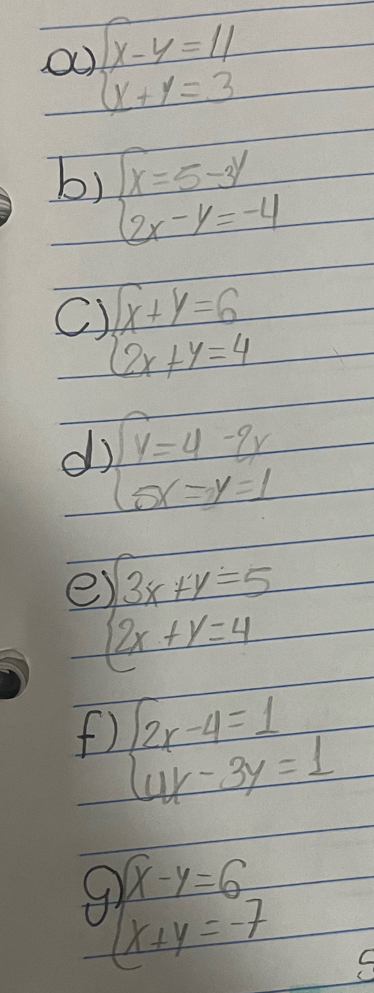 a) { x - y = 11
x + y = 3
b) { x = 5 - 3y
2x - y = -4
c) { x + y = 6
2x + y = 4
d) { y = 4 - 2x
5x = y = 1
e) { 3x + y = 5
2x + y = 4
f) { 2x - 4 = 1
4x - 3y = 1
g) { x - y = 6
x + y = -7